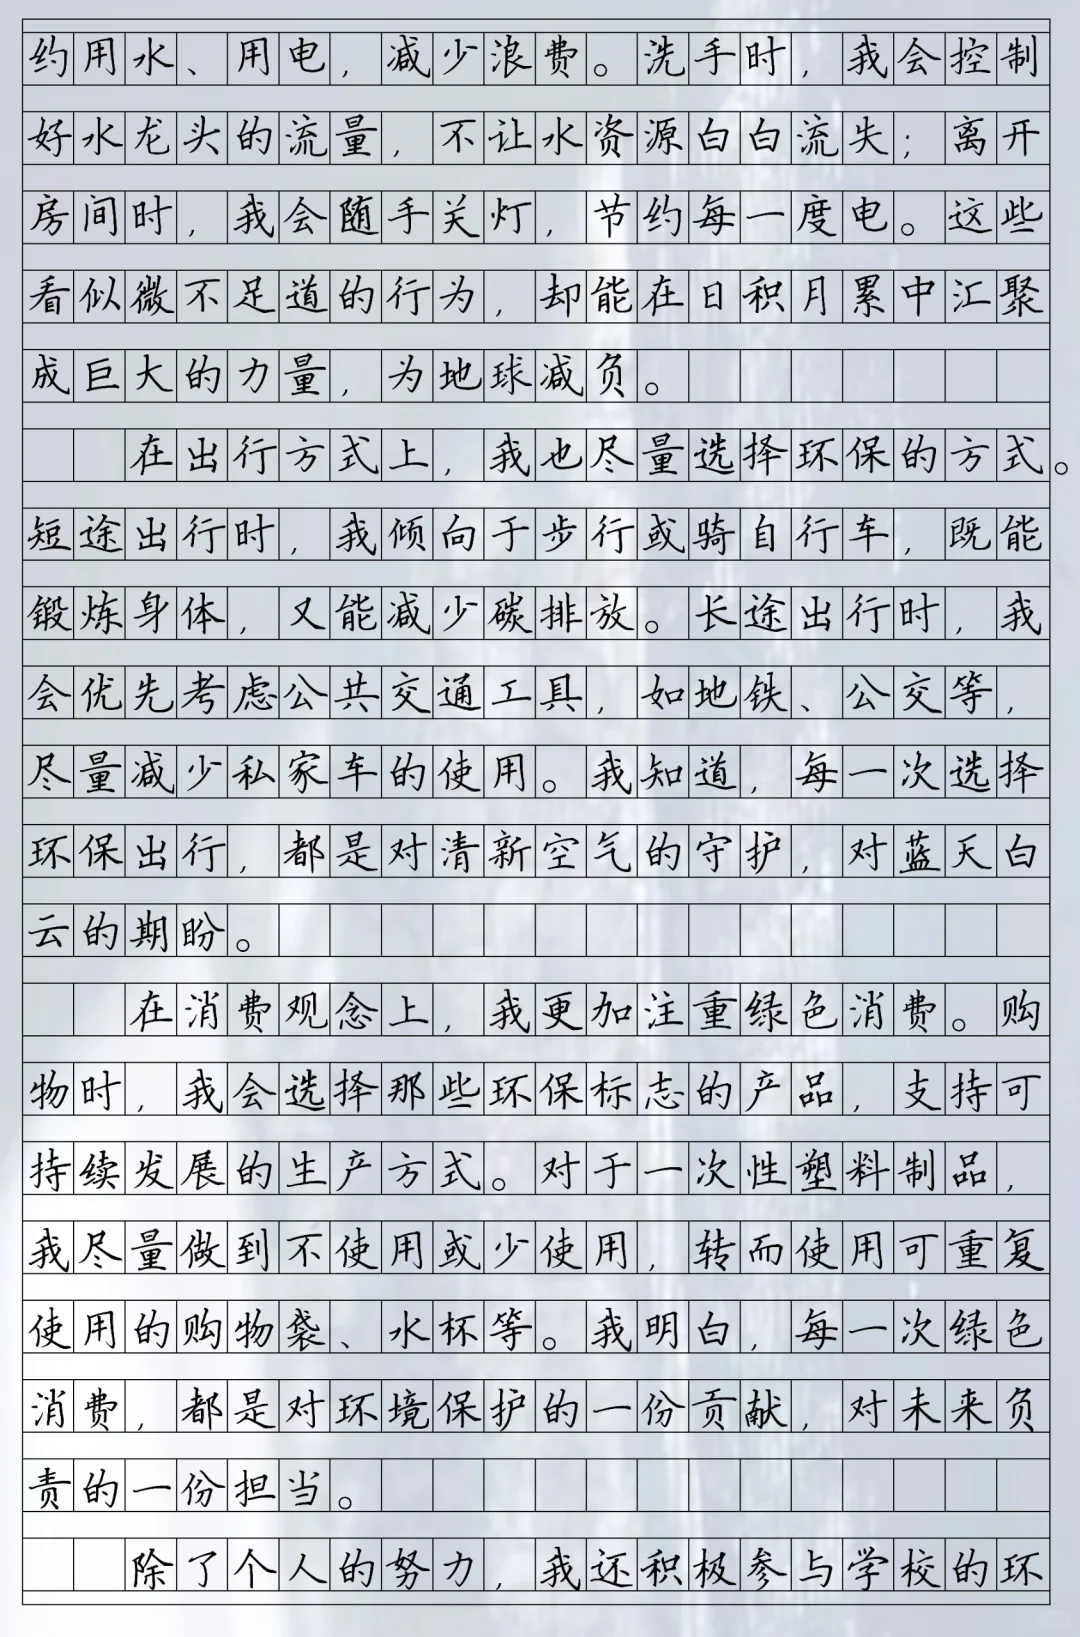 约用水、用电，减少浪费。洗手时，我会控制
好水龙头的流量，不让水资源白白流失；离开
房间时，我会随手关灯，节约每一度电。这些
看似微不足道的行为，却能在日积月累中汇聚
成巨大的力量，为地球减负。
在出行方式上，我也尽量选择环保的方式。
短途出行时，我倾向于步行或骑自行车，既能
锻炼身体，又能减少碳排放。长途出行时，我
会优先考虑公共交通工具，如地铁、公交等，
尽量减少私家车的使用。我知道，每一次选择
环保出行，都是对清新空气的守护，对蓝天白
云的期盼。
在消费观念上，我更加注重绿色消费。购
物时，我会选择那些环保标志的产品，支持可
持续发展的生产方式。对于一次性塑料制品，
我尽量做到不使用或少使用，转而使用可重复
使用的购物袋、水杯等。我明白，每一次绿色
消费，都是对环境保护的一份贡献，对未来负
责的一份担当。
除了个人的努力，我还积极参与学校的环